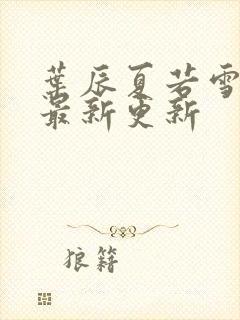 葉辰夏若雪
最新更新
狼籍